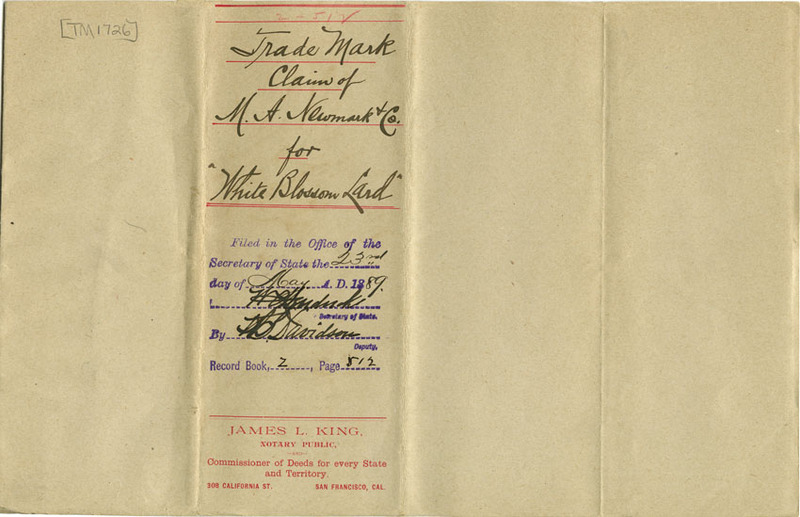 [TM1726]
2-512
Trade Mark
Claim of
M. A. Newmark & Co.
for
"White Blossom Lard"
Filed in the Office of the
Secretary of State the 23rd
day of May A. D. 1889.
W C Hendricks
Secretary of State.
By Davidson
Deputy.
Record Book, 2, Page 512
JAMES L. KING,
NOTARY PUBLIC,
Commissioner of Deeds for every State
and Territory.
308 CALIFORNIA ST. SAN FRANCISCO, CAL.